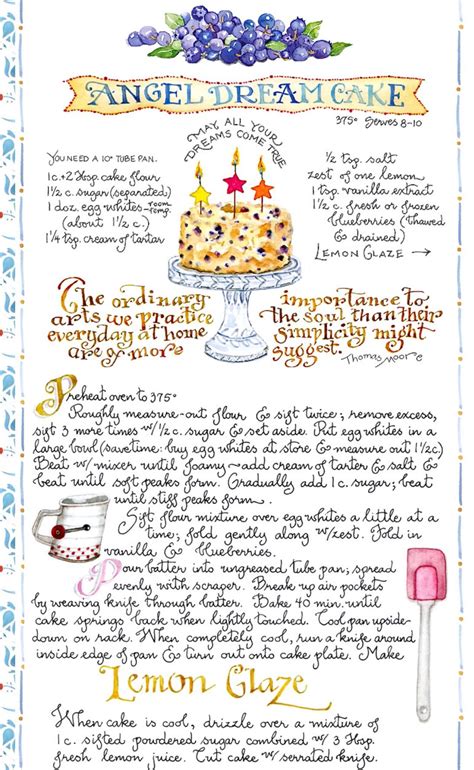 ANGEL DREAM CAKE
375° Serves 8-10
MAY ALL YOUR
DREAMS COME TRUE
YOU NEED A 10" TUBE PAN.
1 c. + 2 tbsp. cake flour
1½ c. sugar (separated)
1 doz. egg whites - room temp.
(about 1½ c.)
1¼ tsp. cream of tartar
½ tsp. salt
zest of one lemon
1 tsp. vanilla extract
1½ c. fresh or frozen
blueberries (thawed
& drained)
LEMON GLAZE →
The ordinary
arts we practice
everyday at home
are of more
importance to
the soul than their
simplicity might
suggest.
Thomas Moore
Preheat oven to 375°
Roughly measure-out flour & sift twice; remove excess,
sift 3 more times w/½ c. sugar & set aside. Put egg whites in a
large bowl (savetime: buy egg whites at store & measure out 1½c.)
Beat w/mixer until foamy~add cream of tarter & salt &
beat until soft peaks form. Gradually add 1 c. sugar; beat
until stiff peaks form.
Sift flour mixture over egg whites a little at a
time; fold gently along w/zest. Fold in
vanilla & blueberries.
Pour batter into ungreased tube pan; spread
evenly with scraper. Break up air pockets
by weaving knife through batter. Bake 40 min. until
cake springs back when lightly touched. Cool pan upside-
down on rack. When completely cool, run a knife around
inside edge of pan & turn out onto cake plate. Make
Lemon Glaze
When cake is cool, drizzle over a mixture of
1 c. sifted powdered sugar combined w/ 3 tbsp.
fresh lemon juice. Cut cake w/ serrated knife.